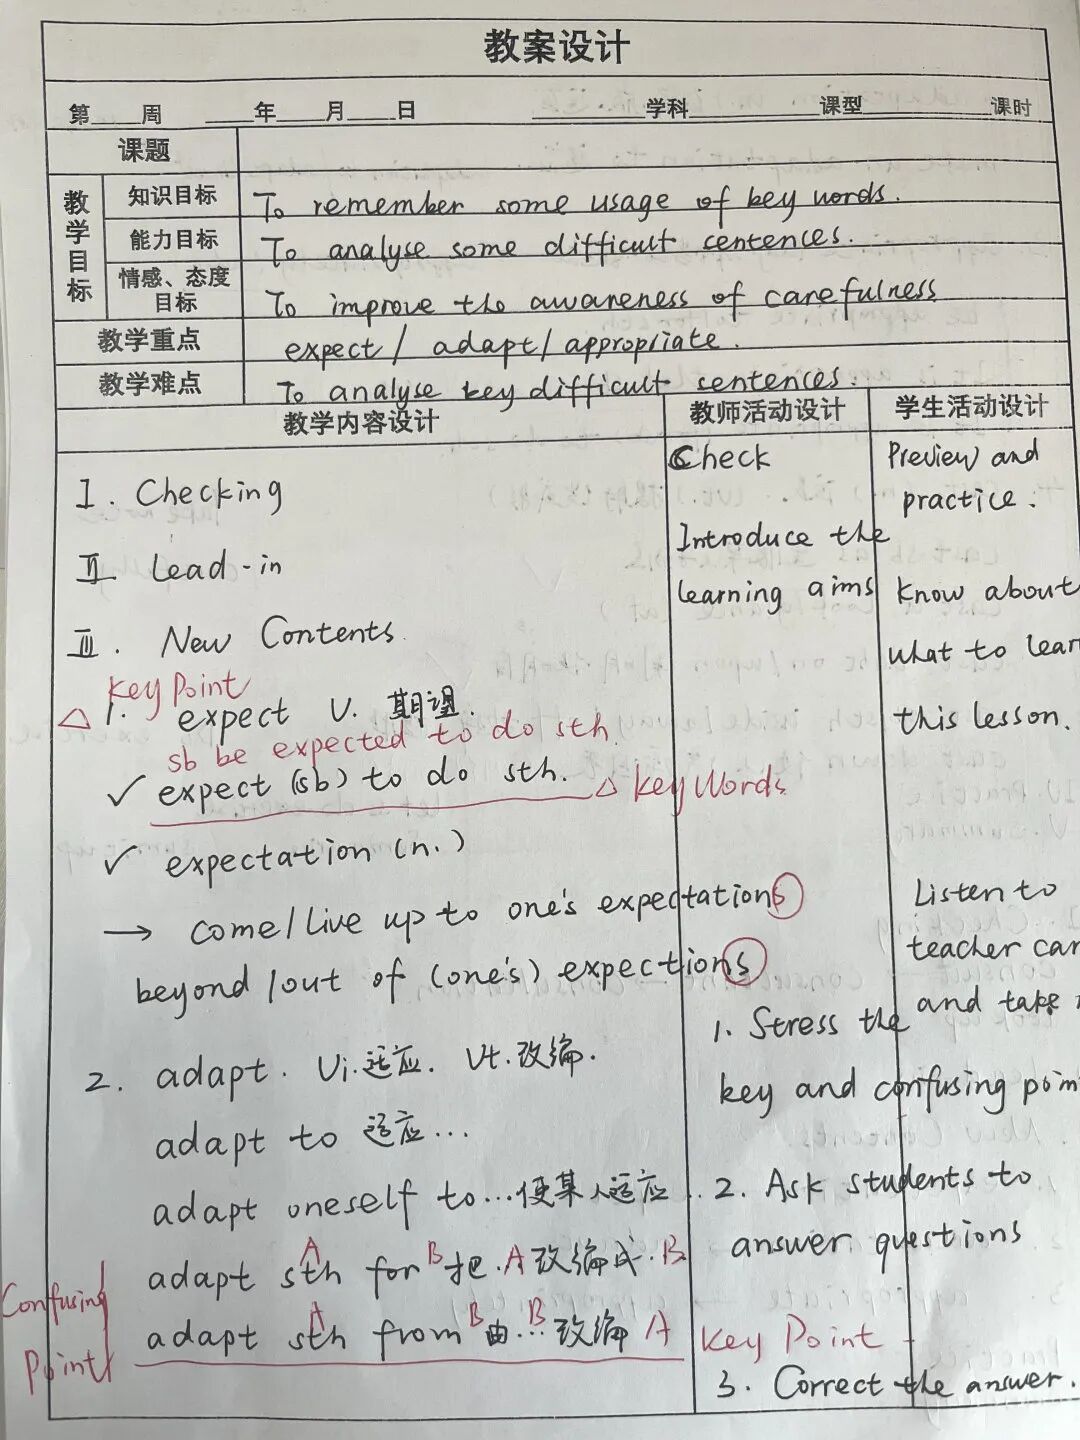 教案设计
第 周 年 月 日 学科 课型 课时
课题
教学目标
知识目标 To remember some usage of key words.
能力目标 To analyse some difficult sentences.
情感、态度目标 To improve the awareness of carefulness
教学重点 expect / adapt / appropriate.
教学难点 To analyse key difficult sentences.
教学内容设计 教师活动设计 学生活动设计
I. Checking
II. Lead-in
III. New Contents.
Key Point
△ 1. expect v. 期望.
sb be expected to do sth.
✓ expect (sb) to do sth. △ Key Words
✓ expectation (n.)
→ come / live up to one's expectations
beyond / out of (one's) expections
2. adapt. Vi.适应. Vt.改编.
adapt to 适应...
adapt oneself to...使某人适应
A B
adapt sth for 把.A改编成.B
Confusing Point
A B B
adapt sth from 由...改编 A
Check
Introduce the
learning aims
1. Stress the
key and confusing
2. Ask students to
answer questions
Key Point
3. Correct the answer.
Preview and
practice.
Know about
what to
this lesson.
Listen to
teacher
and take